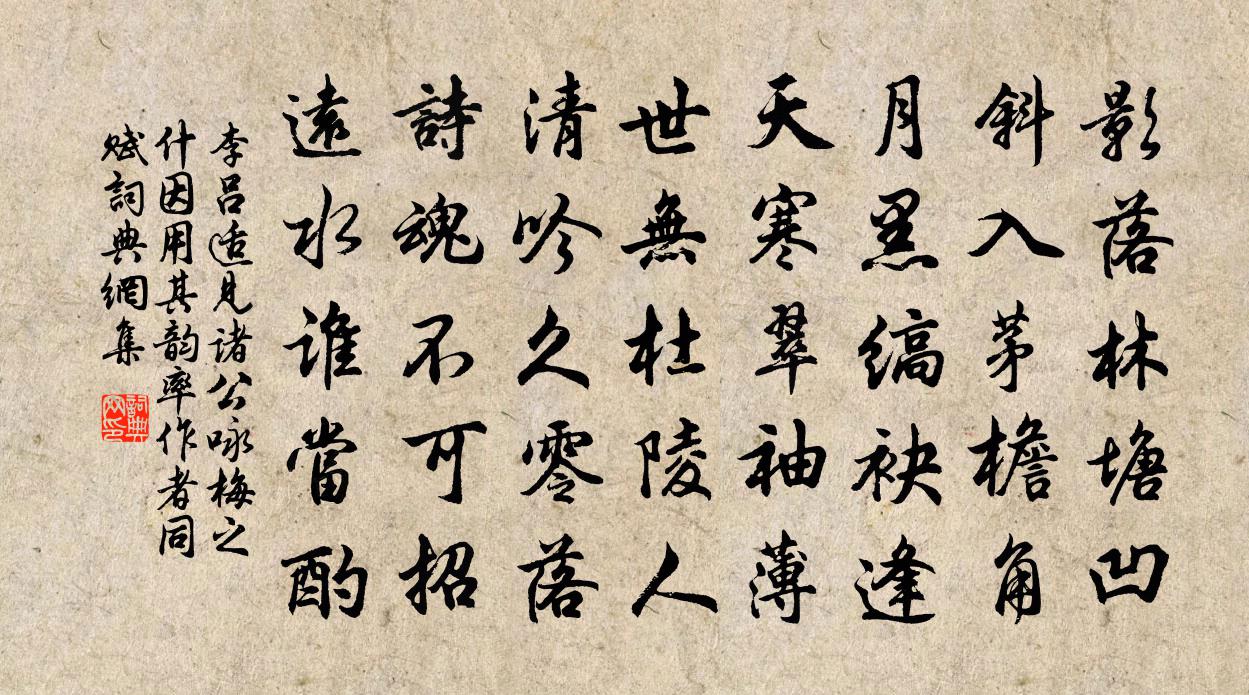 影落林塘凹
斜入茅檐角
月黑縞袂逢
天寒翠袖薄
世無杜陵人
清吟久零落
詩魂不可招
遠水誰當酌
李呂適見諸公咏梅之
什因用其韵率作者同
賦詞典網集
詞典
网印